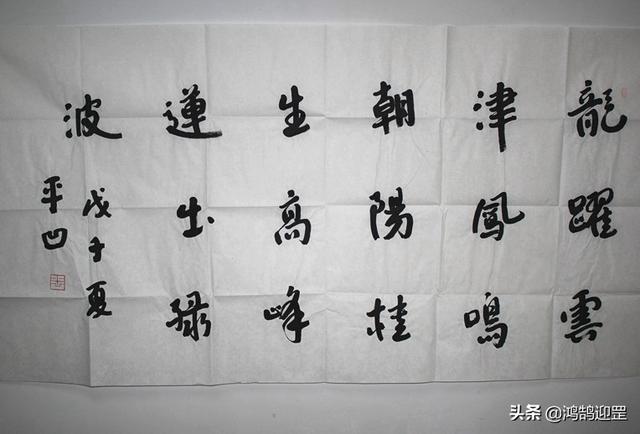 龍躍雲
津鳳鳴
朝陽桂
生高峰
蓮出渌
波
戊子夏
平凹
头条 @鸿鹄迎罡